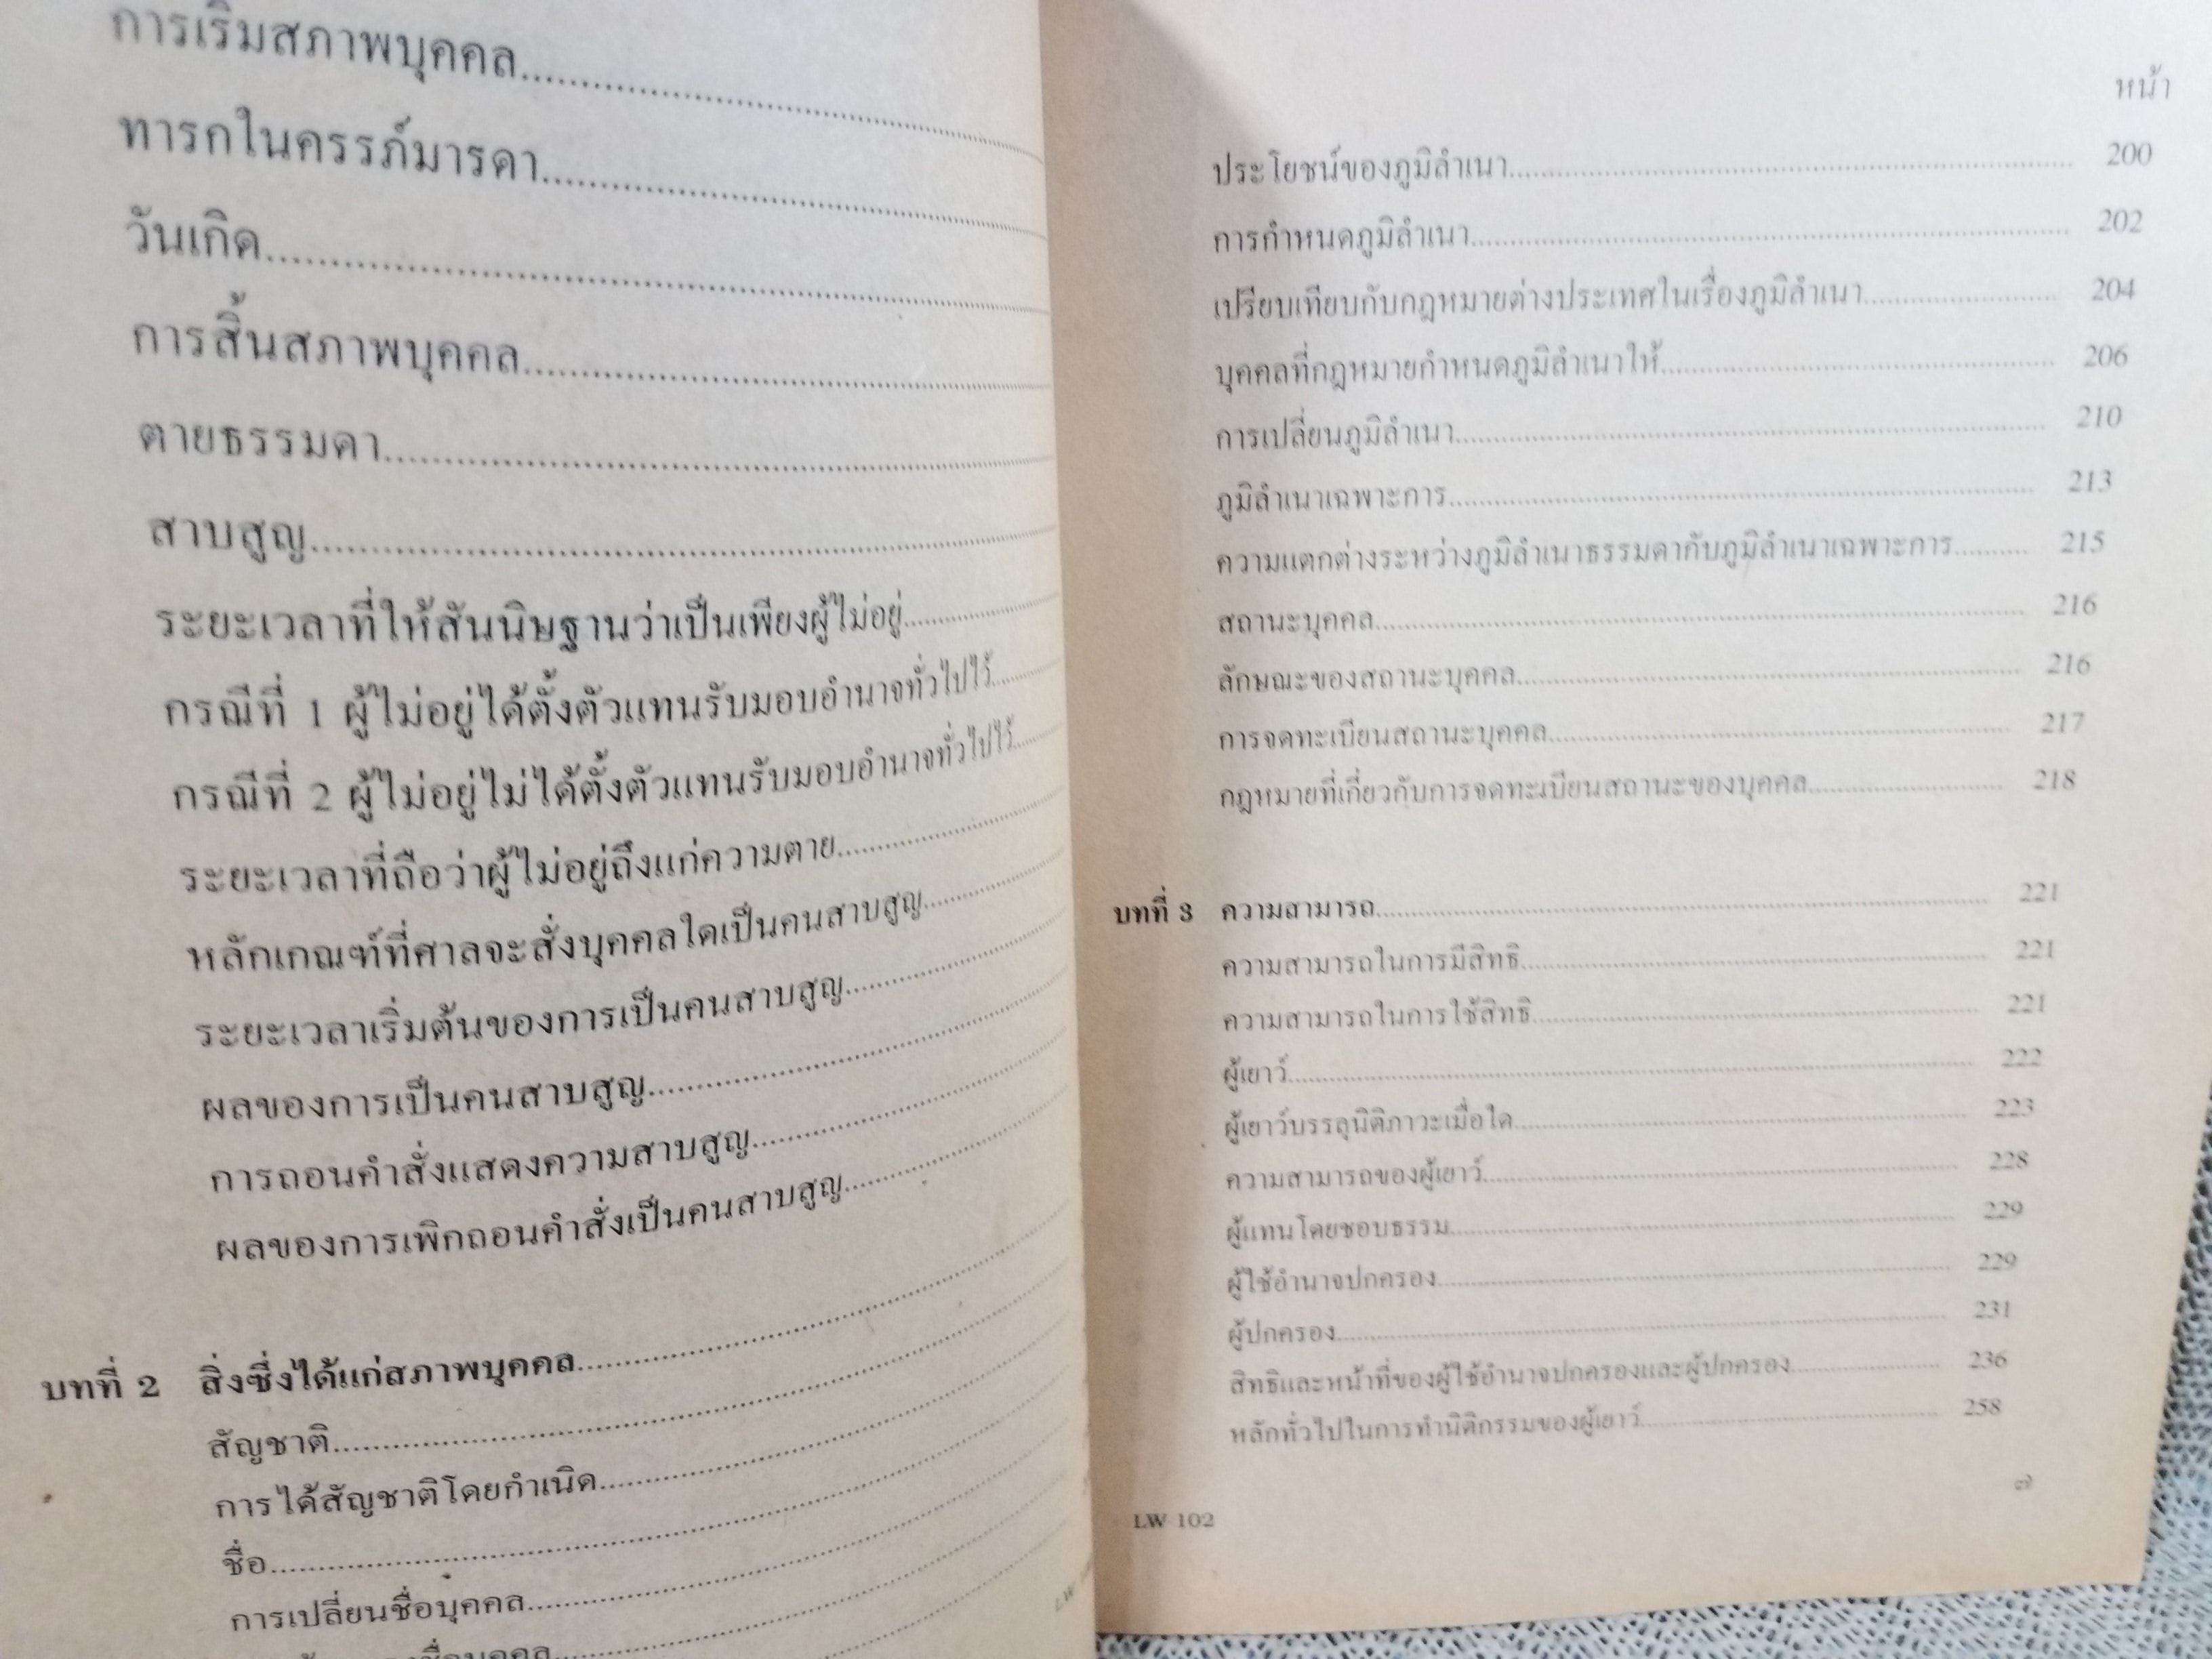 การเริ่มสภาพบุคคล........................
ทารกในครรภ์มารดา........................
วันเกิด........................
การสิ้นสภาพบุคคล........................
ตายธรรมดา........................
สาบสูญ........................
ระยะเวลาที่ให้สันนิษฐานว่าเป็นเพียงผู้ไม่อยู่............
กรณีที่ 1 ผู้ไม่อยู่ได้ตั้งตัวแทนรับมอบอำนาจทั่วไปไว้............
กรณีที่ 2 ผู้ไม่อยู่ไม่ได้ตั้งตัวแทนรับมอบอำนาจทั่วไปไว้............
ระยะเวลาที่ถือว่าผู้ไม่อยู่ถึงแก่ความตาย............
หลักเกณฑ์ที่ศาลจะสั่งบุคคลใดเป็นคนสาบสูญ............
ระยะเวลาเริ่มต้นของการเป็นคนสาบสูญ............
ผลของการเป็นคนสาบสูญ............
การถอนคำสั่งแสดงความสาบสูญ............
ผลของการเพิกถอนคำสั่งเป็นคนสาบสูญ............
บทที่ 2 สิ่งซึ่งได้แก่สภาพบุคคล............
สัญชาติ............
การได้สัญชาติโดยกำเนิด............
ชื่อ............
การเปลี่ยนชื่อบุคคล............
LW
หน้า
ประโยชน์ของภูมิลำเนา............ 200
การกำหนดภูมิลำเนา............ 202
เปรียบเทียบกับกฎหมายต่างประเทศในเรื่องภูมิลำเนา............ 204
บุคคลที่กฎหมายกำหนดภูมิลำเนาให้............ 206
การเปลี่ยนภูมิลำเนา............ 210
ภูมิลำเนาเฉพาะการ............ 213
ความแตกต่างระหว่างภูมิลำเนาธรรมดากับภูมิลำเนาเฉพาะการ............ 215
สถานะบุคคล............ 216
ลักษณะของสถานะบุคคล............ 216
การจดทะเบียนสถานะบุคคล............ 217
กฎหมายที่เกี่ยวกับการจดทะเบียนสถานะของบุคคล............ 218
บทที่ 3 ความสามารถ............ 221
ความสามารถในการมีสิทธิ............ 221
ความสามารถในการใช้สิทธิ............ 221
ผู้เยาว์............ 222
ผู้เยาว์บรรลุนิติภาวะเมื่อใด............ 223
ความสามารถของผู้เยาว์............ 228
ผู้แทนโดยชอบธรรม............ 229
ผู้ใช้อำนาจปกครอง............ 229
ผู้ปกครอง............ 231
สิทธิและหน้าที่ของผู้ใช้อำนาจปกครองและผู้ปกครอง............ 236
หลักทั่วไปในการทำนิติกรรมของผู้เยาว์............ 258
๗
LW 102